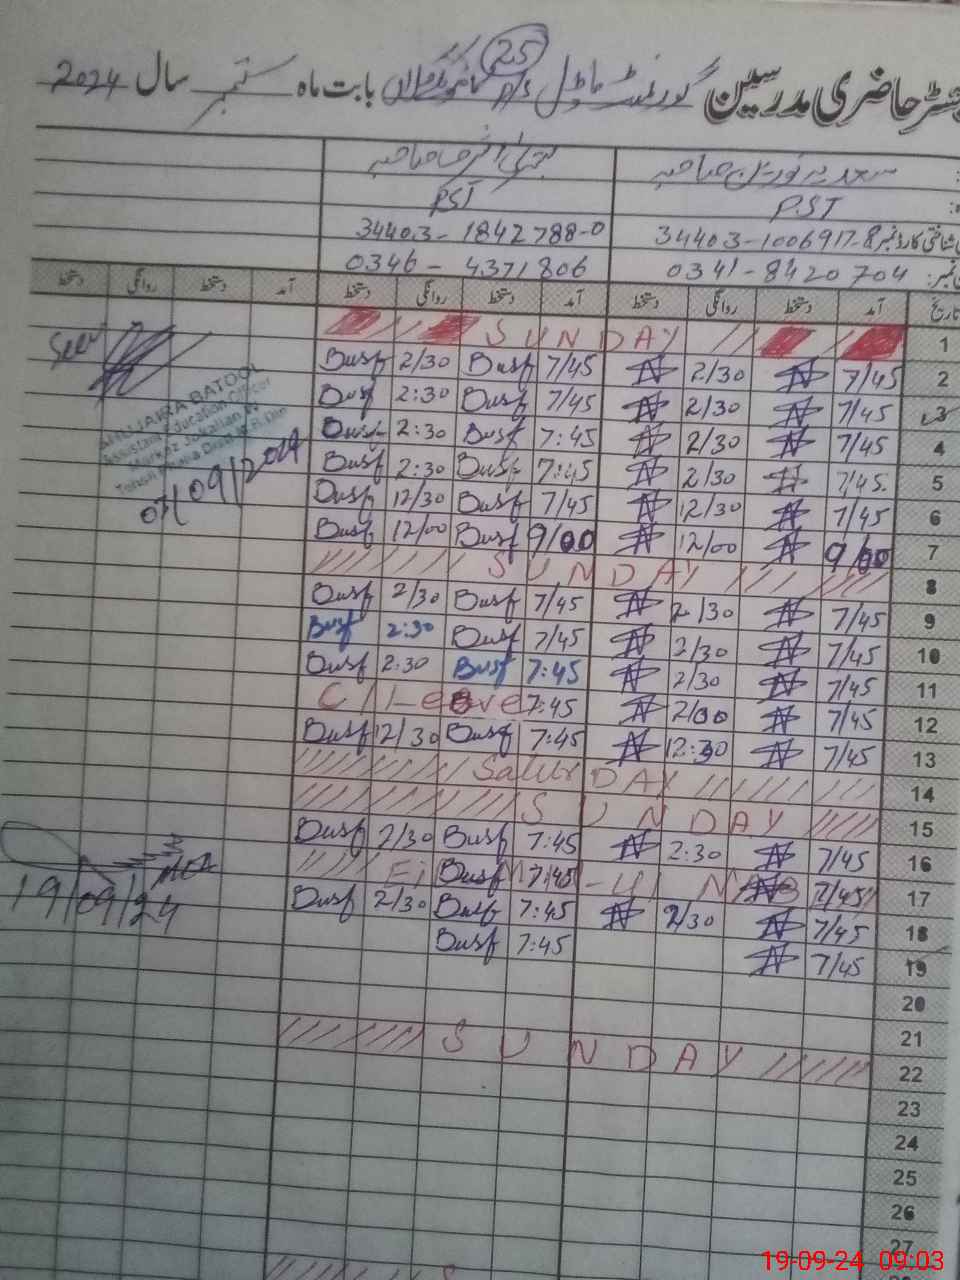 رجسٹر حاضری مدرسین گورنمنٹ ماڈل بابت ماہ ستمبر سال 2024
25
صاحبہ
P.S.T PST
شناختی کارڈ نمبر 34403-1006917-8 34403-1842788-0
نمبر: 0341-8420704 0346-4371806
تاریخ آمد دستخط روانگی دستخط آمد دستخط روانگی دستخط آمد دستخط روانگی دستخط
1 SUNDAY
2 7/45 N 2/30 N 7/45 Busf 2/30 Busf
3 7/45 N 2/30 N 7/45 Busf 2:30 Busf
4 7/45 N 2/30 N 7:45 Busf 2:30 Busf
5 7/45 N 2/30 N 7:45 Busf 2:30 Busf
6 7/45 N 12/30 N 7/45 Busf 12/30 Busf
7 9/00 N 12/00 N 9/00 Busf 12/00 Busf
8 SUNDAY
9 7/45 N 2/30 N 7/45 Busf 2/30 Busf
10 7/45 N 2/30 N 7/45 Busf 2:30 Busf
11 7/45 N 2/30 N 7:45 Busf 2:30 Busf
12 7/45 N 2/00 N 7:45 C/Leave
13 7/45 N 12:30 N 7:45 Busf 12/30 Busf
14 SaturDAY
15 SUNDAY
16 7/45 N 2:30 N 7:45 Busf 2/30 Busf
17 7/45 N 7:45 Busf
18 7/45 N 2/30 N 7:45 Busf 2/30 Busf
19 7/45 N 7:45 Busf
20
21
22 SUNDAY
23
24
25
26
27
Seen
BATOOL
Assistant Education Officer
Markaz
07/09/2024
19/09/24
19-09-24 09:03